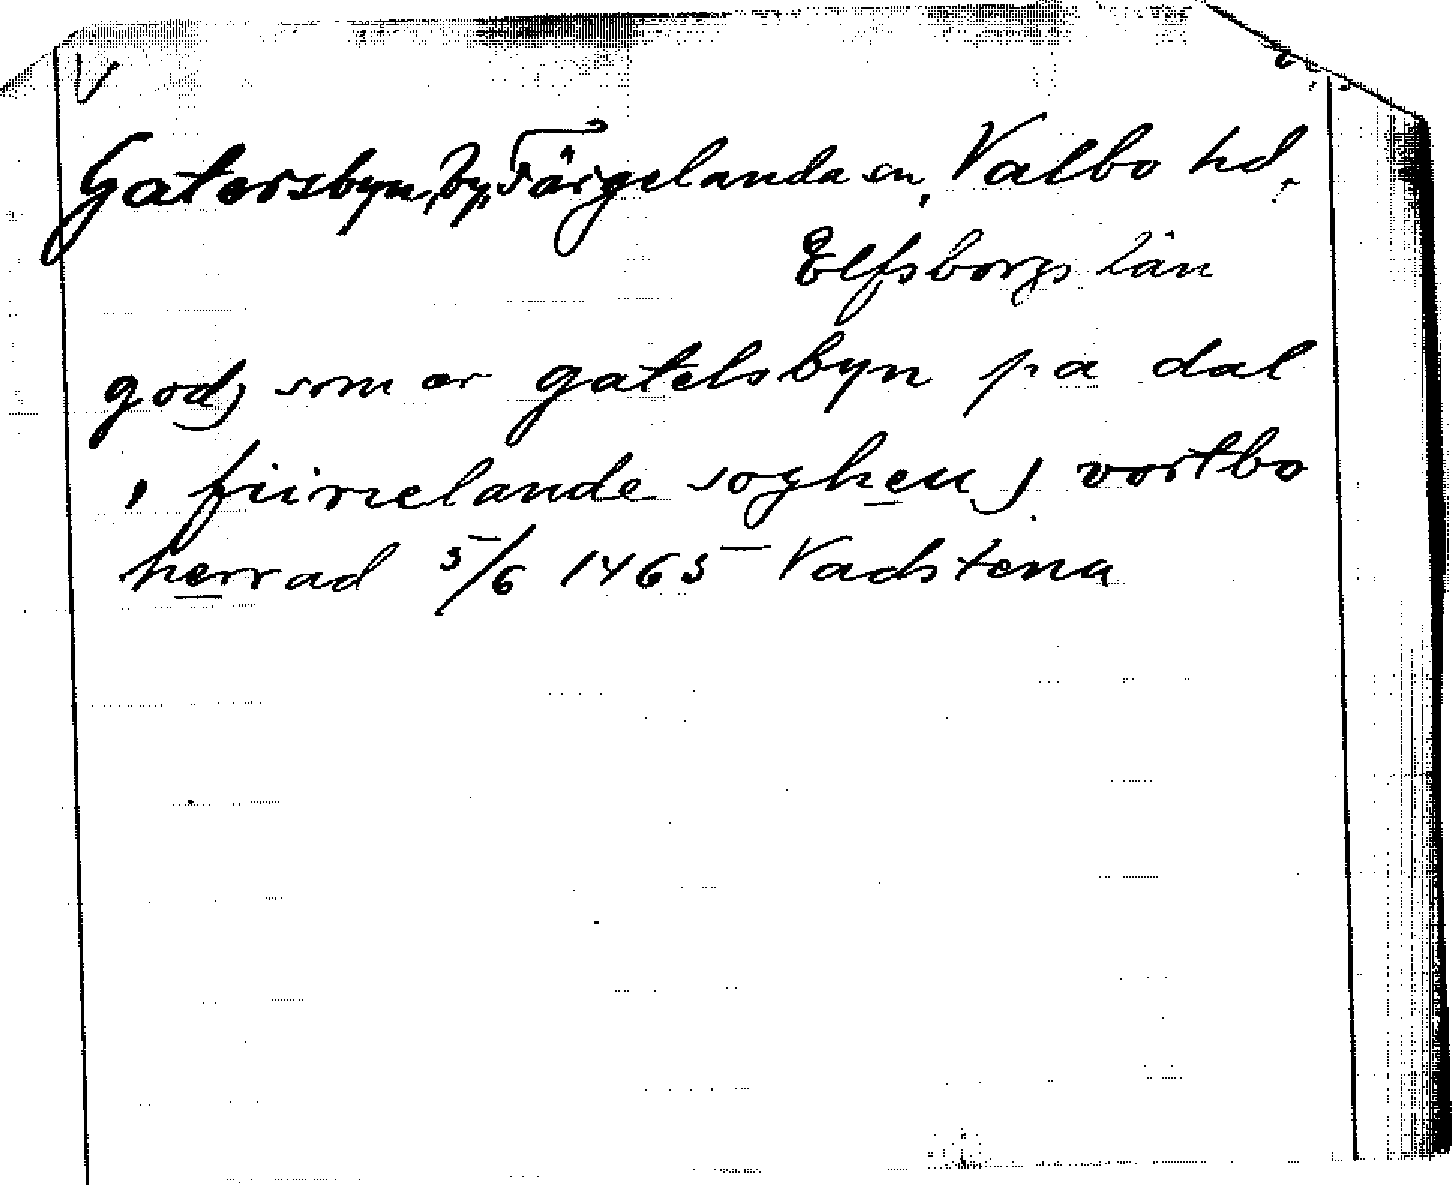 V
Gatersbyn, by, Färgelanda sn, Valbo hd,
Elfsborgs län
godz som ær gatelsbyn pa dal
i fiirielande soghen j vortbo
herrad 5/6 1465 Vadstena